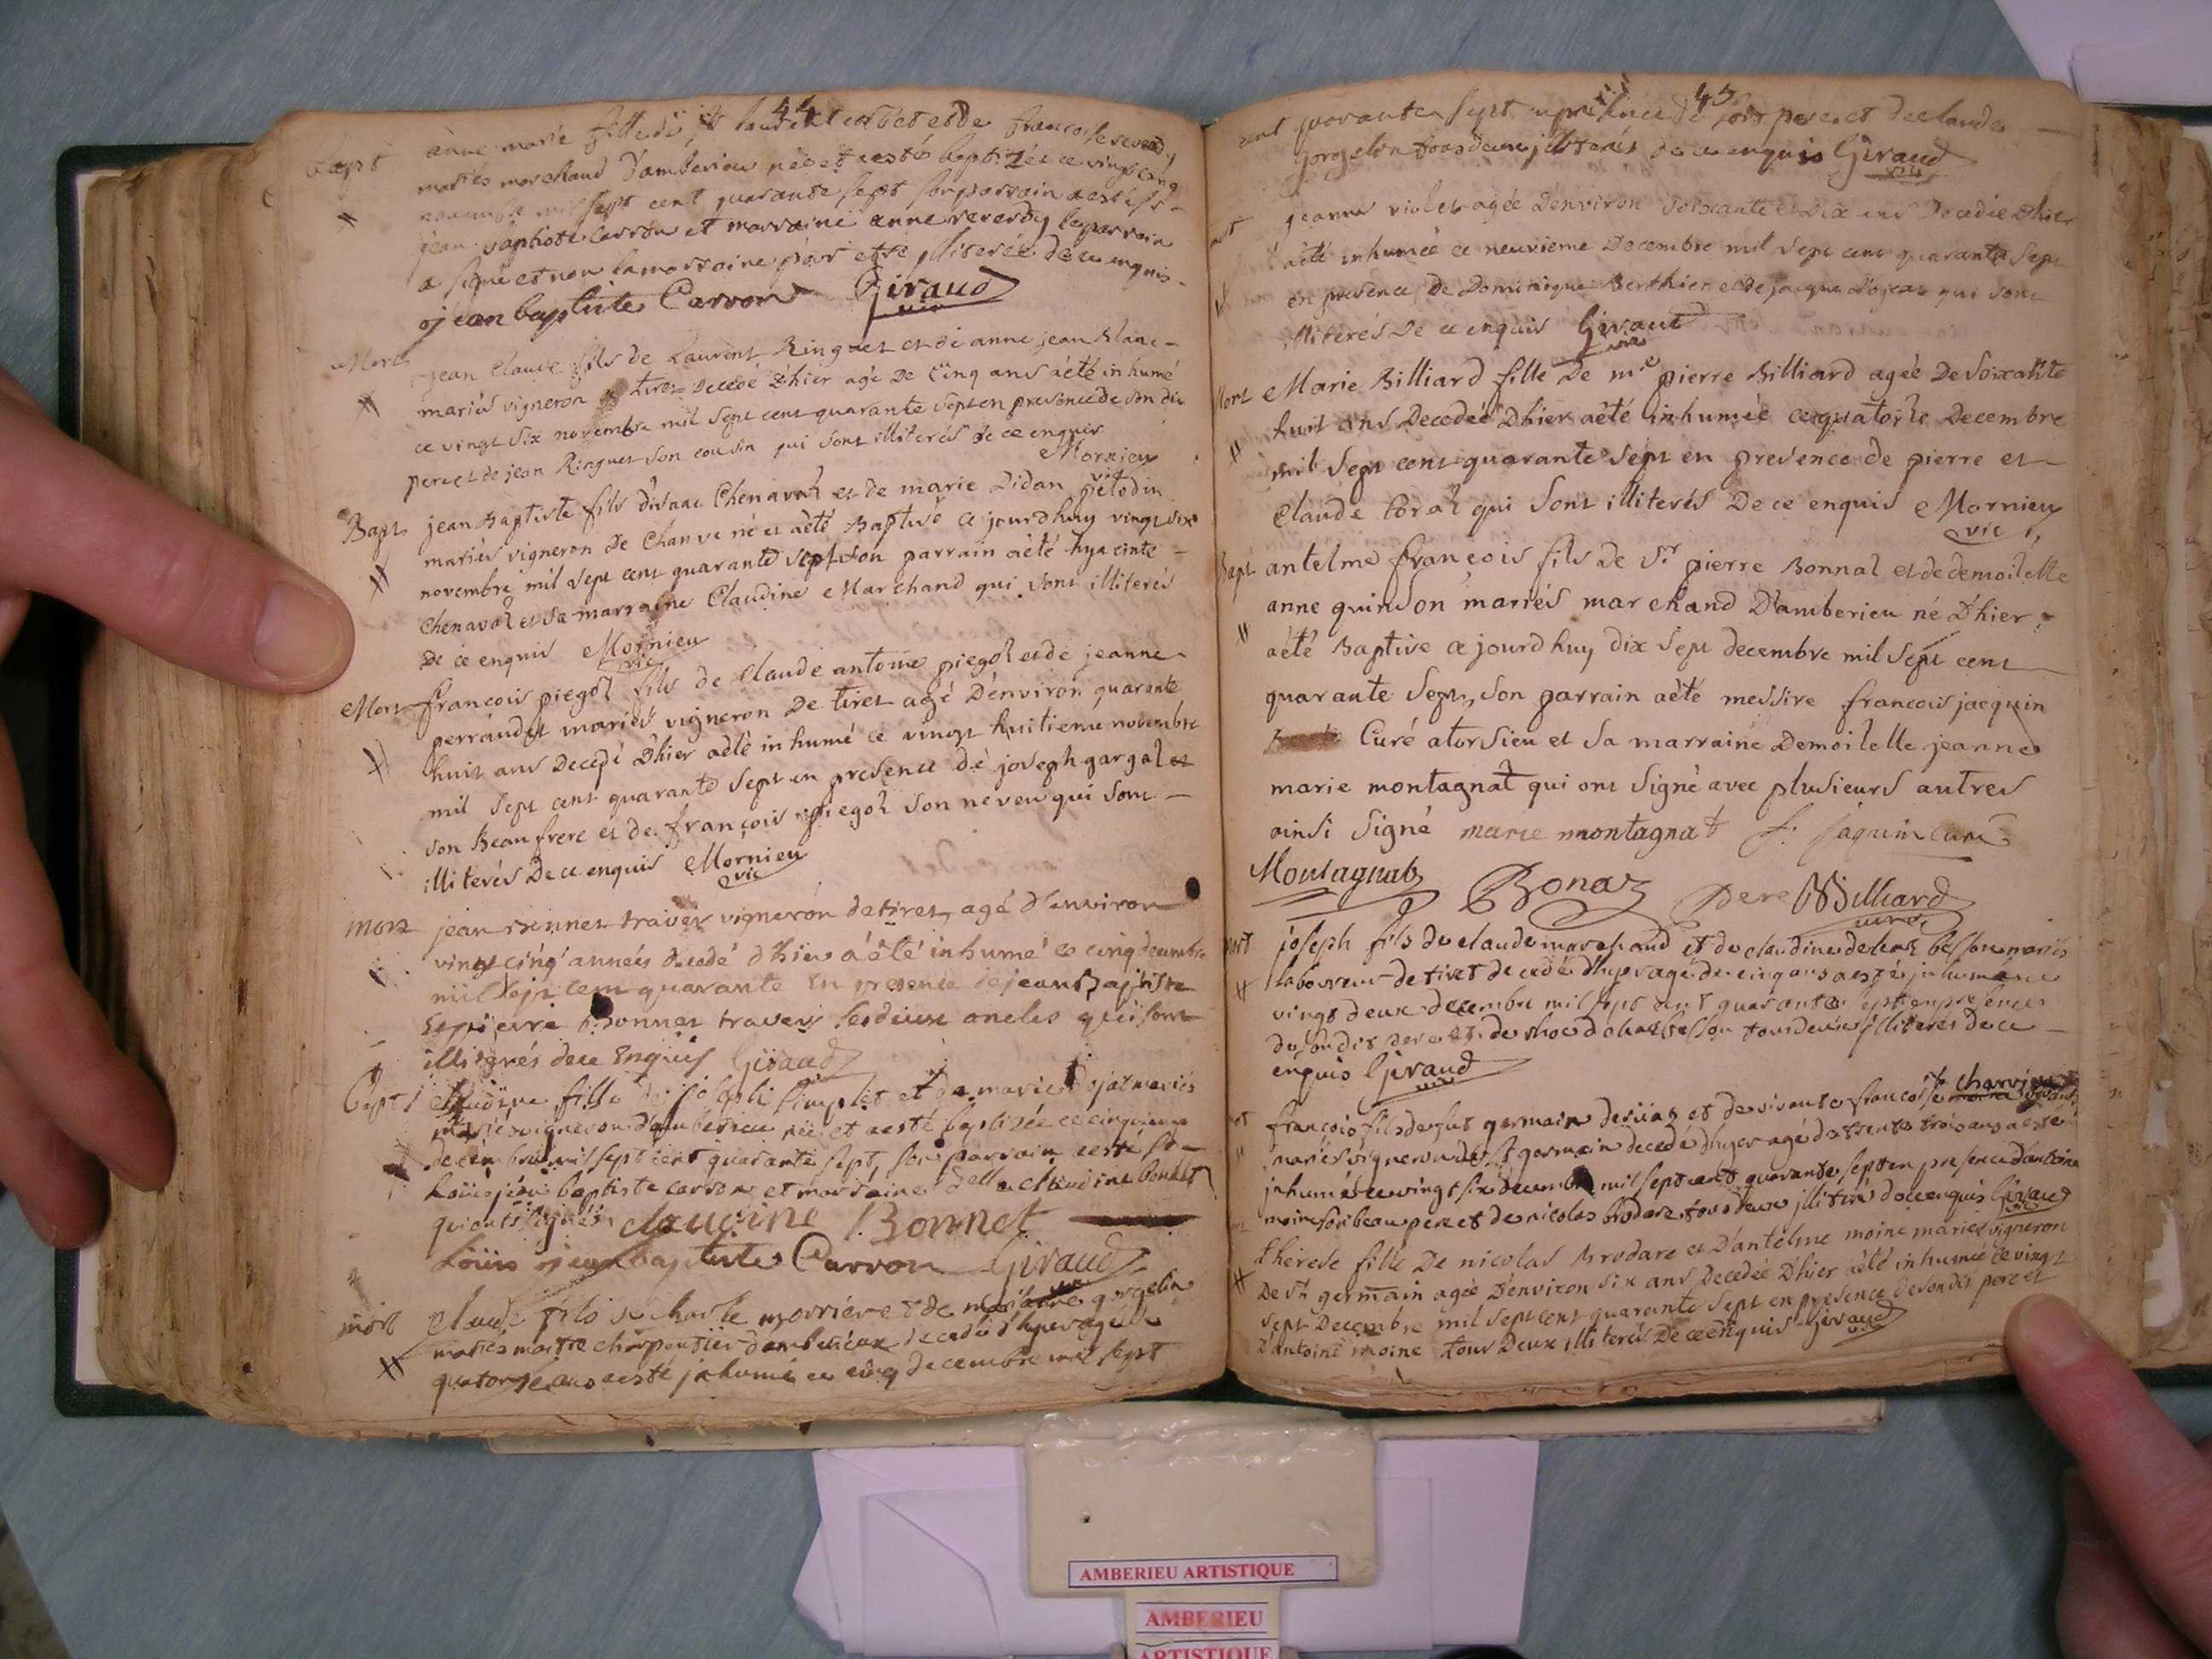 44
Bapt anne marie fille de Sr laurent corbet et de francoise reverdy
mariés marchand d'amberieu née et aesté baptizée ce vingt cinq
novembre mil sept cent quarante sept son parrain a esté Sr
jean baptiste Carron et marraine anne reverdy le parrain
a signé et non la marraine pour etre illiterée de ce enquis
jean baptiste Carron Giraud
Mort jean Claude fils de Laurent Ringuet et de anne jean blanc
mariés vigneron de tiret decedé d'hier agé de cinq ans aèté inhumé
ce vingt six novembre mil sept cent quarante sept en presence de son dit
pere et de jean Ringuet son cousin qui sont illiterés de ce enquis
Mornieu
vic
Bapt jean Baptiste fils d'isaac Chenaval et de marie Didan
mariés vigneron de né et aèté Baptisé ce jourdhuy vingt six
novembre mil sept cent quarante sept son parrain aèté hyacinte
Chenaval et sa marraine Claudine Marchand qui sont illiterés
de ce enquis Mornieu
vic
Mort francois piegol fils de Claude antoine piegol et de jeanne
perraudet mariés vigneron de tiret agé d'environ quarante
huit ans decedé d'hier aèté inhumé ce vingt huitieme novembre
mil sept cent quarante sept en presence de joseph gargal et
son Beaufrere et de françois piegol son neveu qui sont
illiterés de ce enquis Mornieu
vic
mort jean bonnet travers vigneron de tiret, agé d'environ
vingt cinq années decedé d'hier a été inhumé ce cinq decembre
mil sept cent quarante en presence de jean Baptiste
et pierre bonnet travers ses deux oncles qui sont
illiterés de ce enquis Giraud
Bapt Claudine fille de joseph simplet et de marie dojat mariés
vigneron d'amberieu née et aesté baptisée ce cinquieme
decembre mil sept cent quarante sept, son parrain aesté Sr
Loüis jean baptiste carron et marraine delle claudine bonnet
qui ont signés claudine Bonnet
Loüis jean baptiste Carron Giraud
mort claude fils de charle morriere et de gorgelin
mariés maitre charpentier d'amberieux decedé d'hyer agé de
quatorze ans aesté inhumé ce cinq decembre mil sept
45
cent quarante sept en presence de son pere et de claude
gorgelin tous deux illiterés de ce enquis Giraud
mort jeanne violet agée d'environ soixante et dix ans decedée d'hier
aèté inhumée ce neuvieme decembre mil sept cent quarante sept
en presence de Dominique Berthier et de jacque dojeat qui sont
illiterés de ce enquis Giraud
Mort Marie Billiard fille de me pierre Billiard agée de soixante
huit ans decedée d'hier aèté inhumée ce quatorze decembre
mil sept cent quarante sept en presence de pierre et
Claude toral qui sont illiterés de ce enquis Mornieu
vic
Bapt antelme françois fils de Sr pierre Bonnal et de demoiselle
anne quinson mariés marchand d'amberieu né d'hier
aèté Baptisé ce jourdhuy dix sept decembre mil sept cent
quarante sept, son parrain aèté messire francois jacquin
Curé atorsieu et sa marraine demoiselle jeanne
marie montagnat qui ont signé avec plusieurs autres
ainsi signé marie montagnat f: jaquin curé
Montagnat Bonaz Pere Billiard
curé
mort joseph fils de claude marchand et de claudine besson mariés
laboureur de tiret decedé d'hyer agé de cinq ans aesté inhumé ce
vingt deux decembre mil sept cent quarante sept en presence
du son dit pere et de besson tous deux illiterés de ce
enquis Giraud
mort francois fils de fut germain et de vivante francoise charvien
mariés vigneron de St germain decedé d'hyer agé de trente trois ans aesté
inhumé ce vingt six decembre mil sept cent quarante sept en presence d'antoine
moine son beau pere et de nicolas brodare tous deux illiterés de ce enquis Giraud
therese fille de nicolas Brodare et d'antelme moine mariés vigneron
de St germain agée d'environ six ans decedée d'hier aèté inhumée ce vingt
sept decembre mil sept cent quarante sept en presence de son dit pere et
d'antoine moine tous deux illiterés de ce enquis Giraud
AMBERIEU ARTISTIQUE
AMBERIEU
ARTISTIQUE